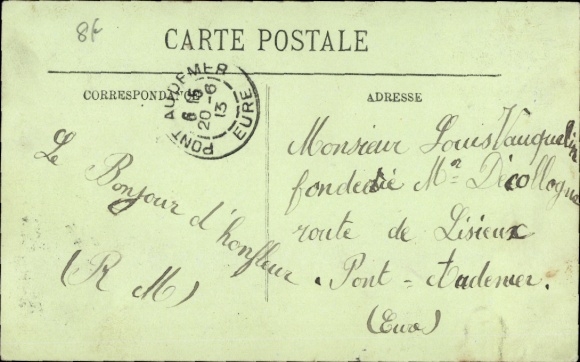 8f
CARTE POSTALE
CORRESPONDANCE
ADRESSE
PONT AUDEMER
20-6
13
EURE
Le Bonjour d'honfleur
(R M)
Monsieur Louis Vauquelin
Mon Décollogne
route de Lisieux
Pont-Audemer.
(Eure)